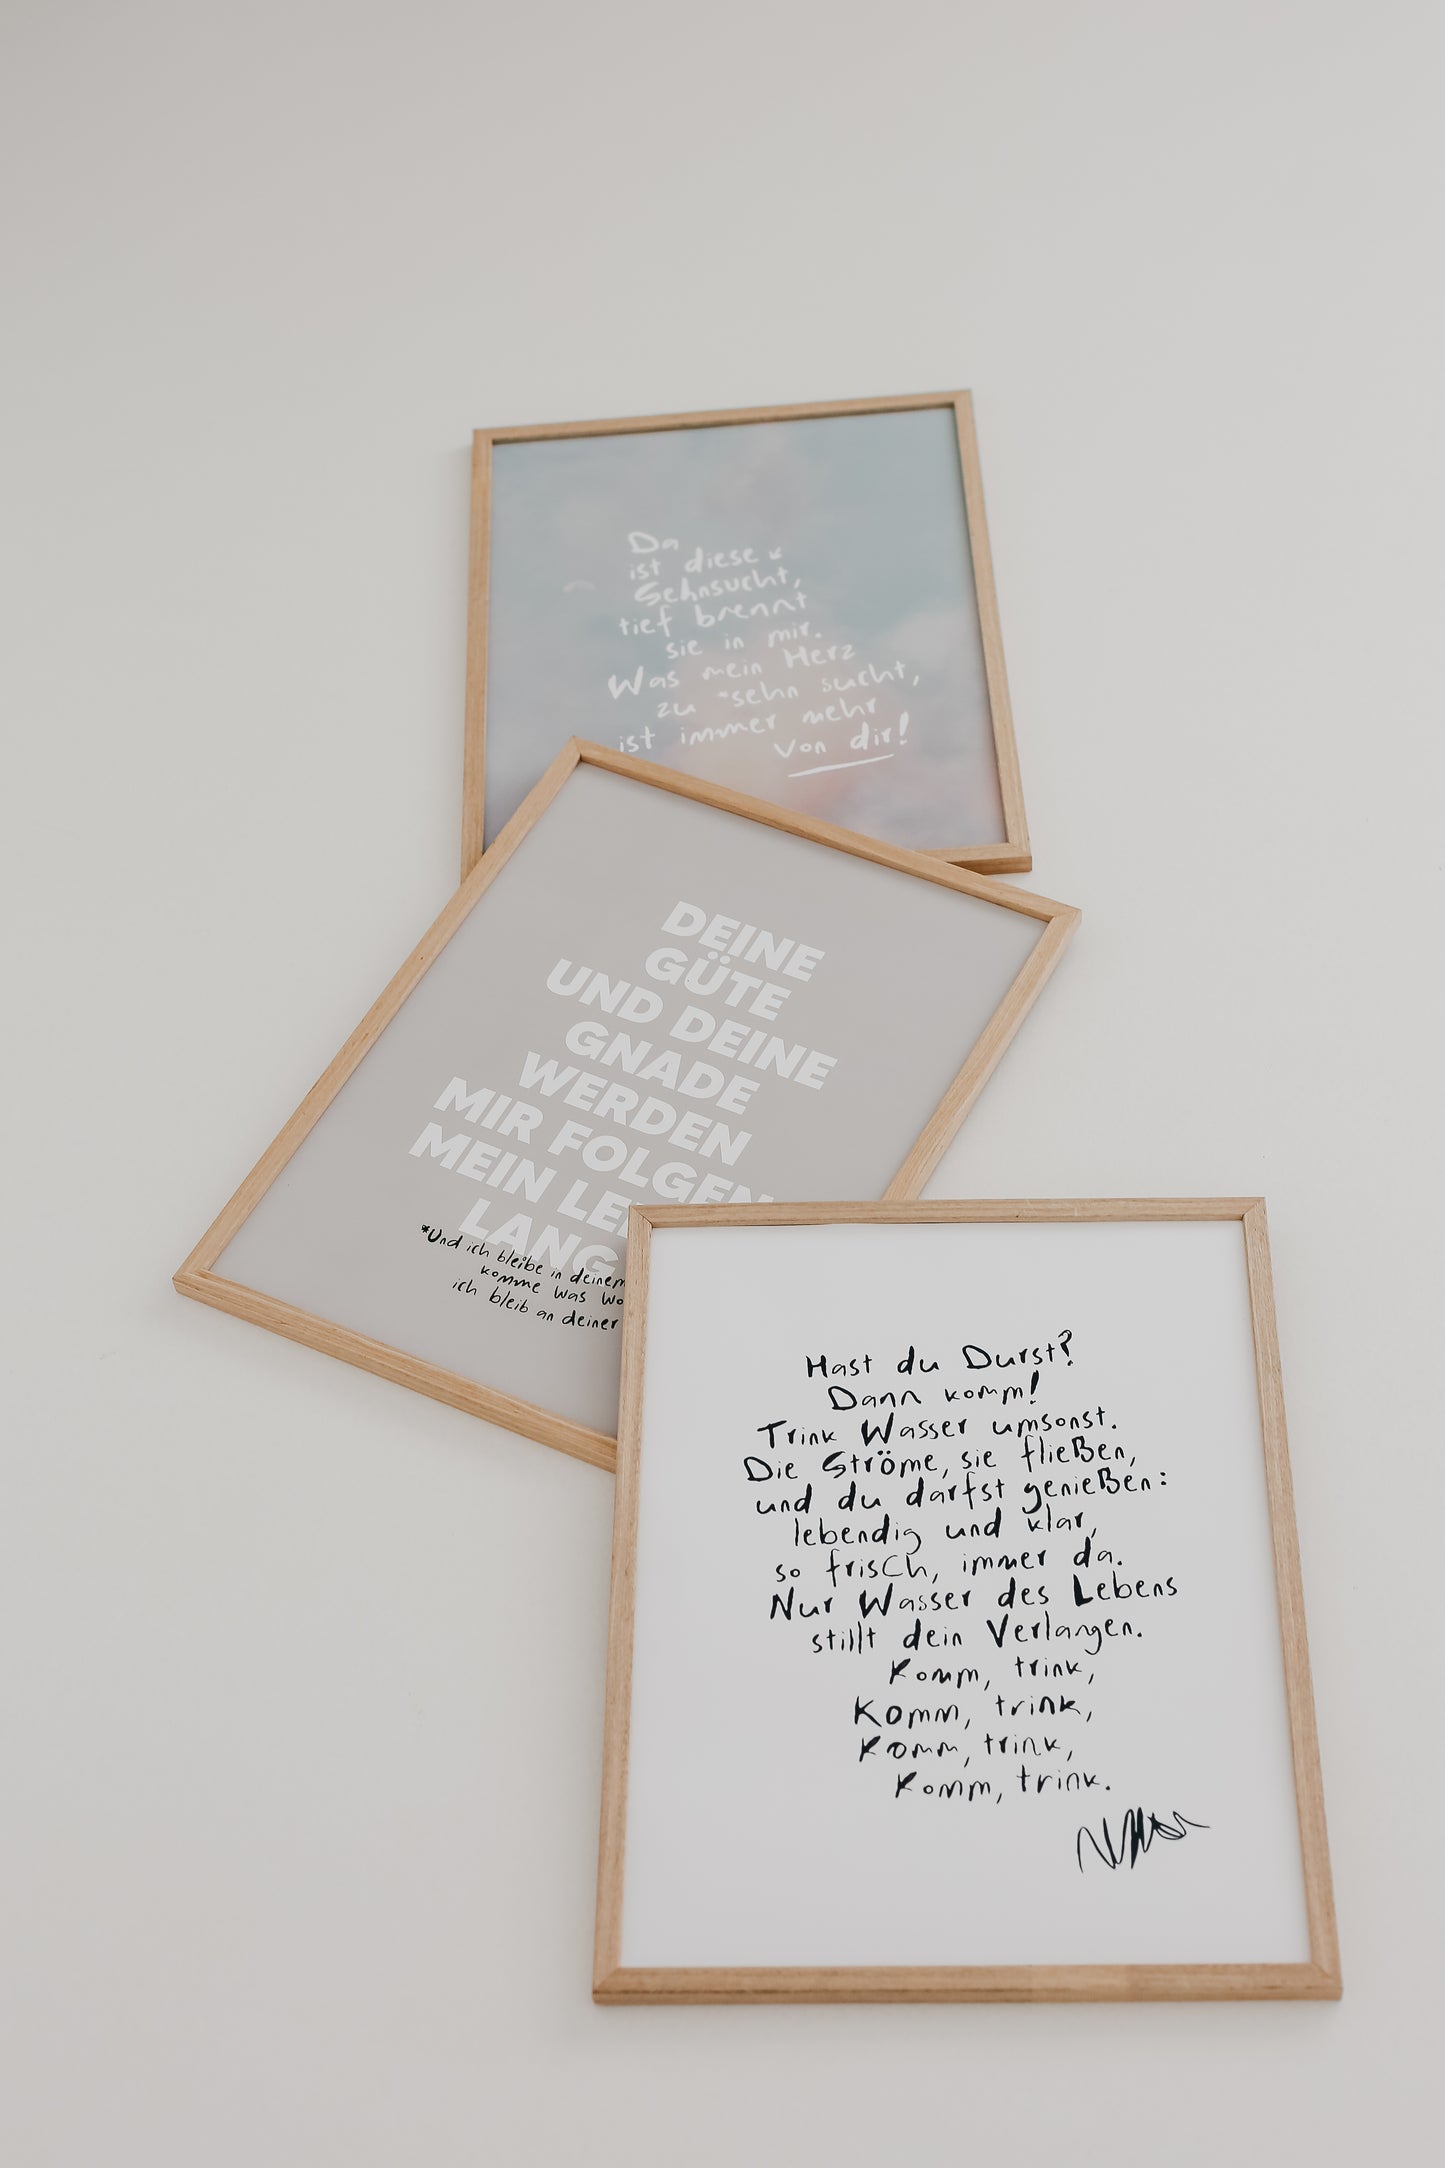 Da
ist diese
Sehnsucht,
tief brennt
sie in mir.
Was mein Herz
zu *sehn sucht,
ist immer mehr
von dir!
DEINE
GÜTE
UND DEINE
GNADE
WERDEN
MIR FOLGEN
MEIN LE
LANG
*Und ich bleibe in deinem
komme was wo
ich bleib an deiner
Hast du Durst?
Dann komm!
Trink Wasser umsonst.
Die Ströme, sie fließen,
und du darfst genießen:
lebendig und klar,
so frisch, immer da.
Nur Wasser des Lebens
stillt dein Verlangen.
Komm, trink,
Komm, trink,
Komm, trink,
Komm, trink.